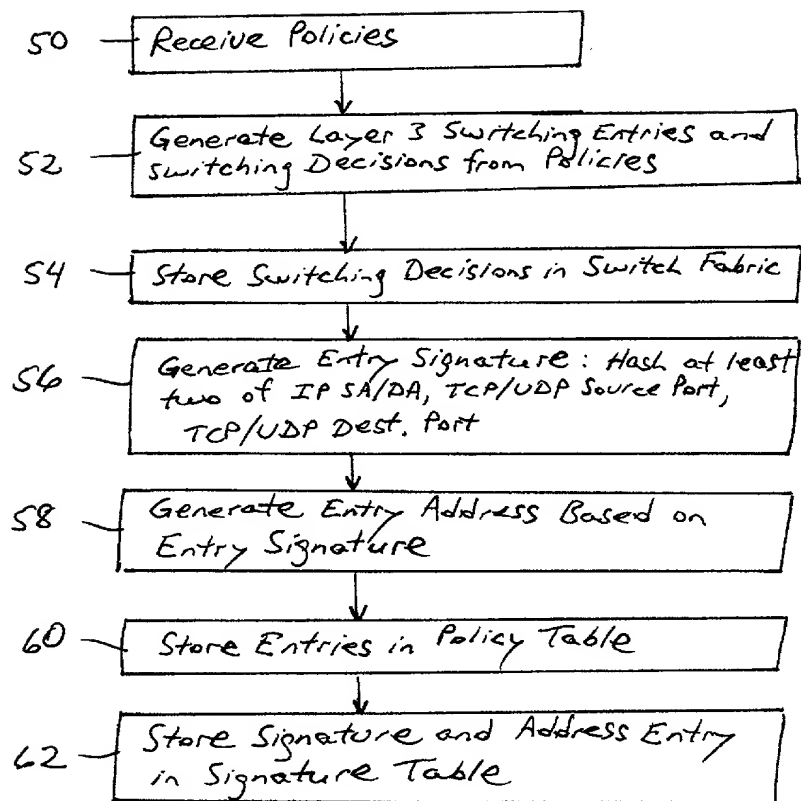 50 Receive Policies
52 Generate Layer 3 Switching Entries and
switching Decisions from Policies
54 Store Switching Decisions in Switch Fabric
56 Generate Entry Signature: Hash at least
two of IP SA/DA, TCP/UDP Source Port,
TCP/UDP Dest. Port
58 Generate Entry Address Based on
Entry Signature
60 Store Entries in Policy Table
62 Store Signature and Address Entry
in Signature Table